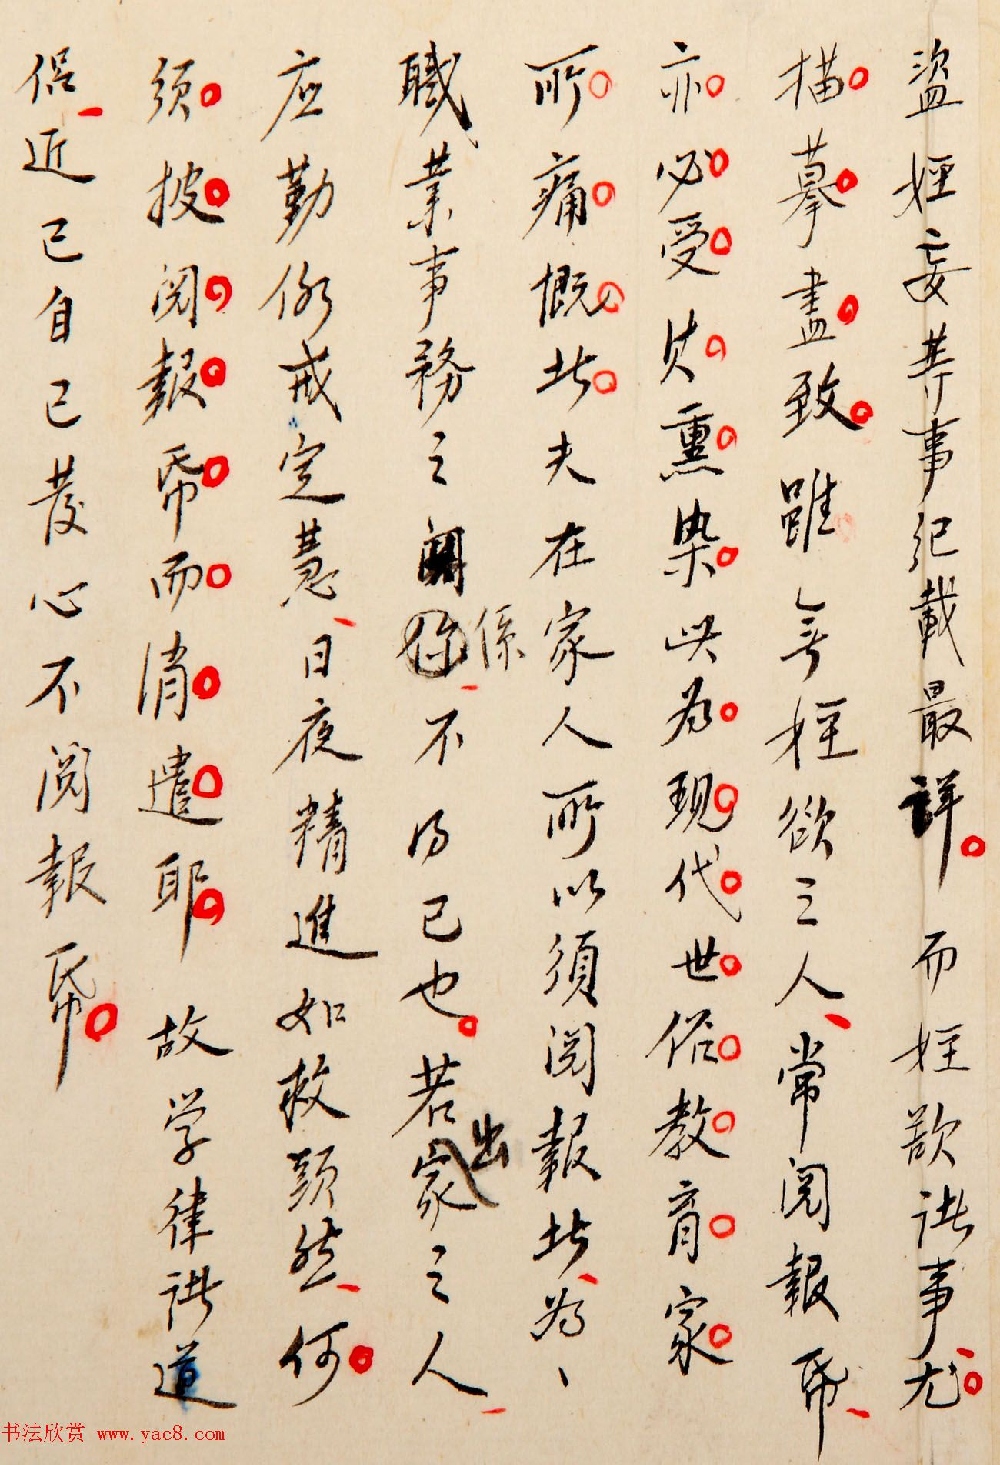 盜婬妄等事紀載最詳。而婬欲諸事、尤
描摹盡致。雖無婬欲之人、常閱報帋、
亦必受其熏染此為現代世俗教育家
所痛慨者夫在家人所以須閱報者、為、
職業事務之關係、不得已也。若出家之人、
应勤修戒定慧、日夜精進如救頭然、何
須披閱報帋而消遣耶 故学律諸道
侶、近已自己發心不閱報帋。
书法欣赏 www.yac8.com